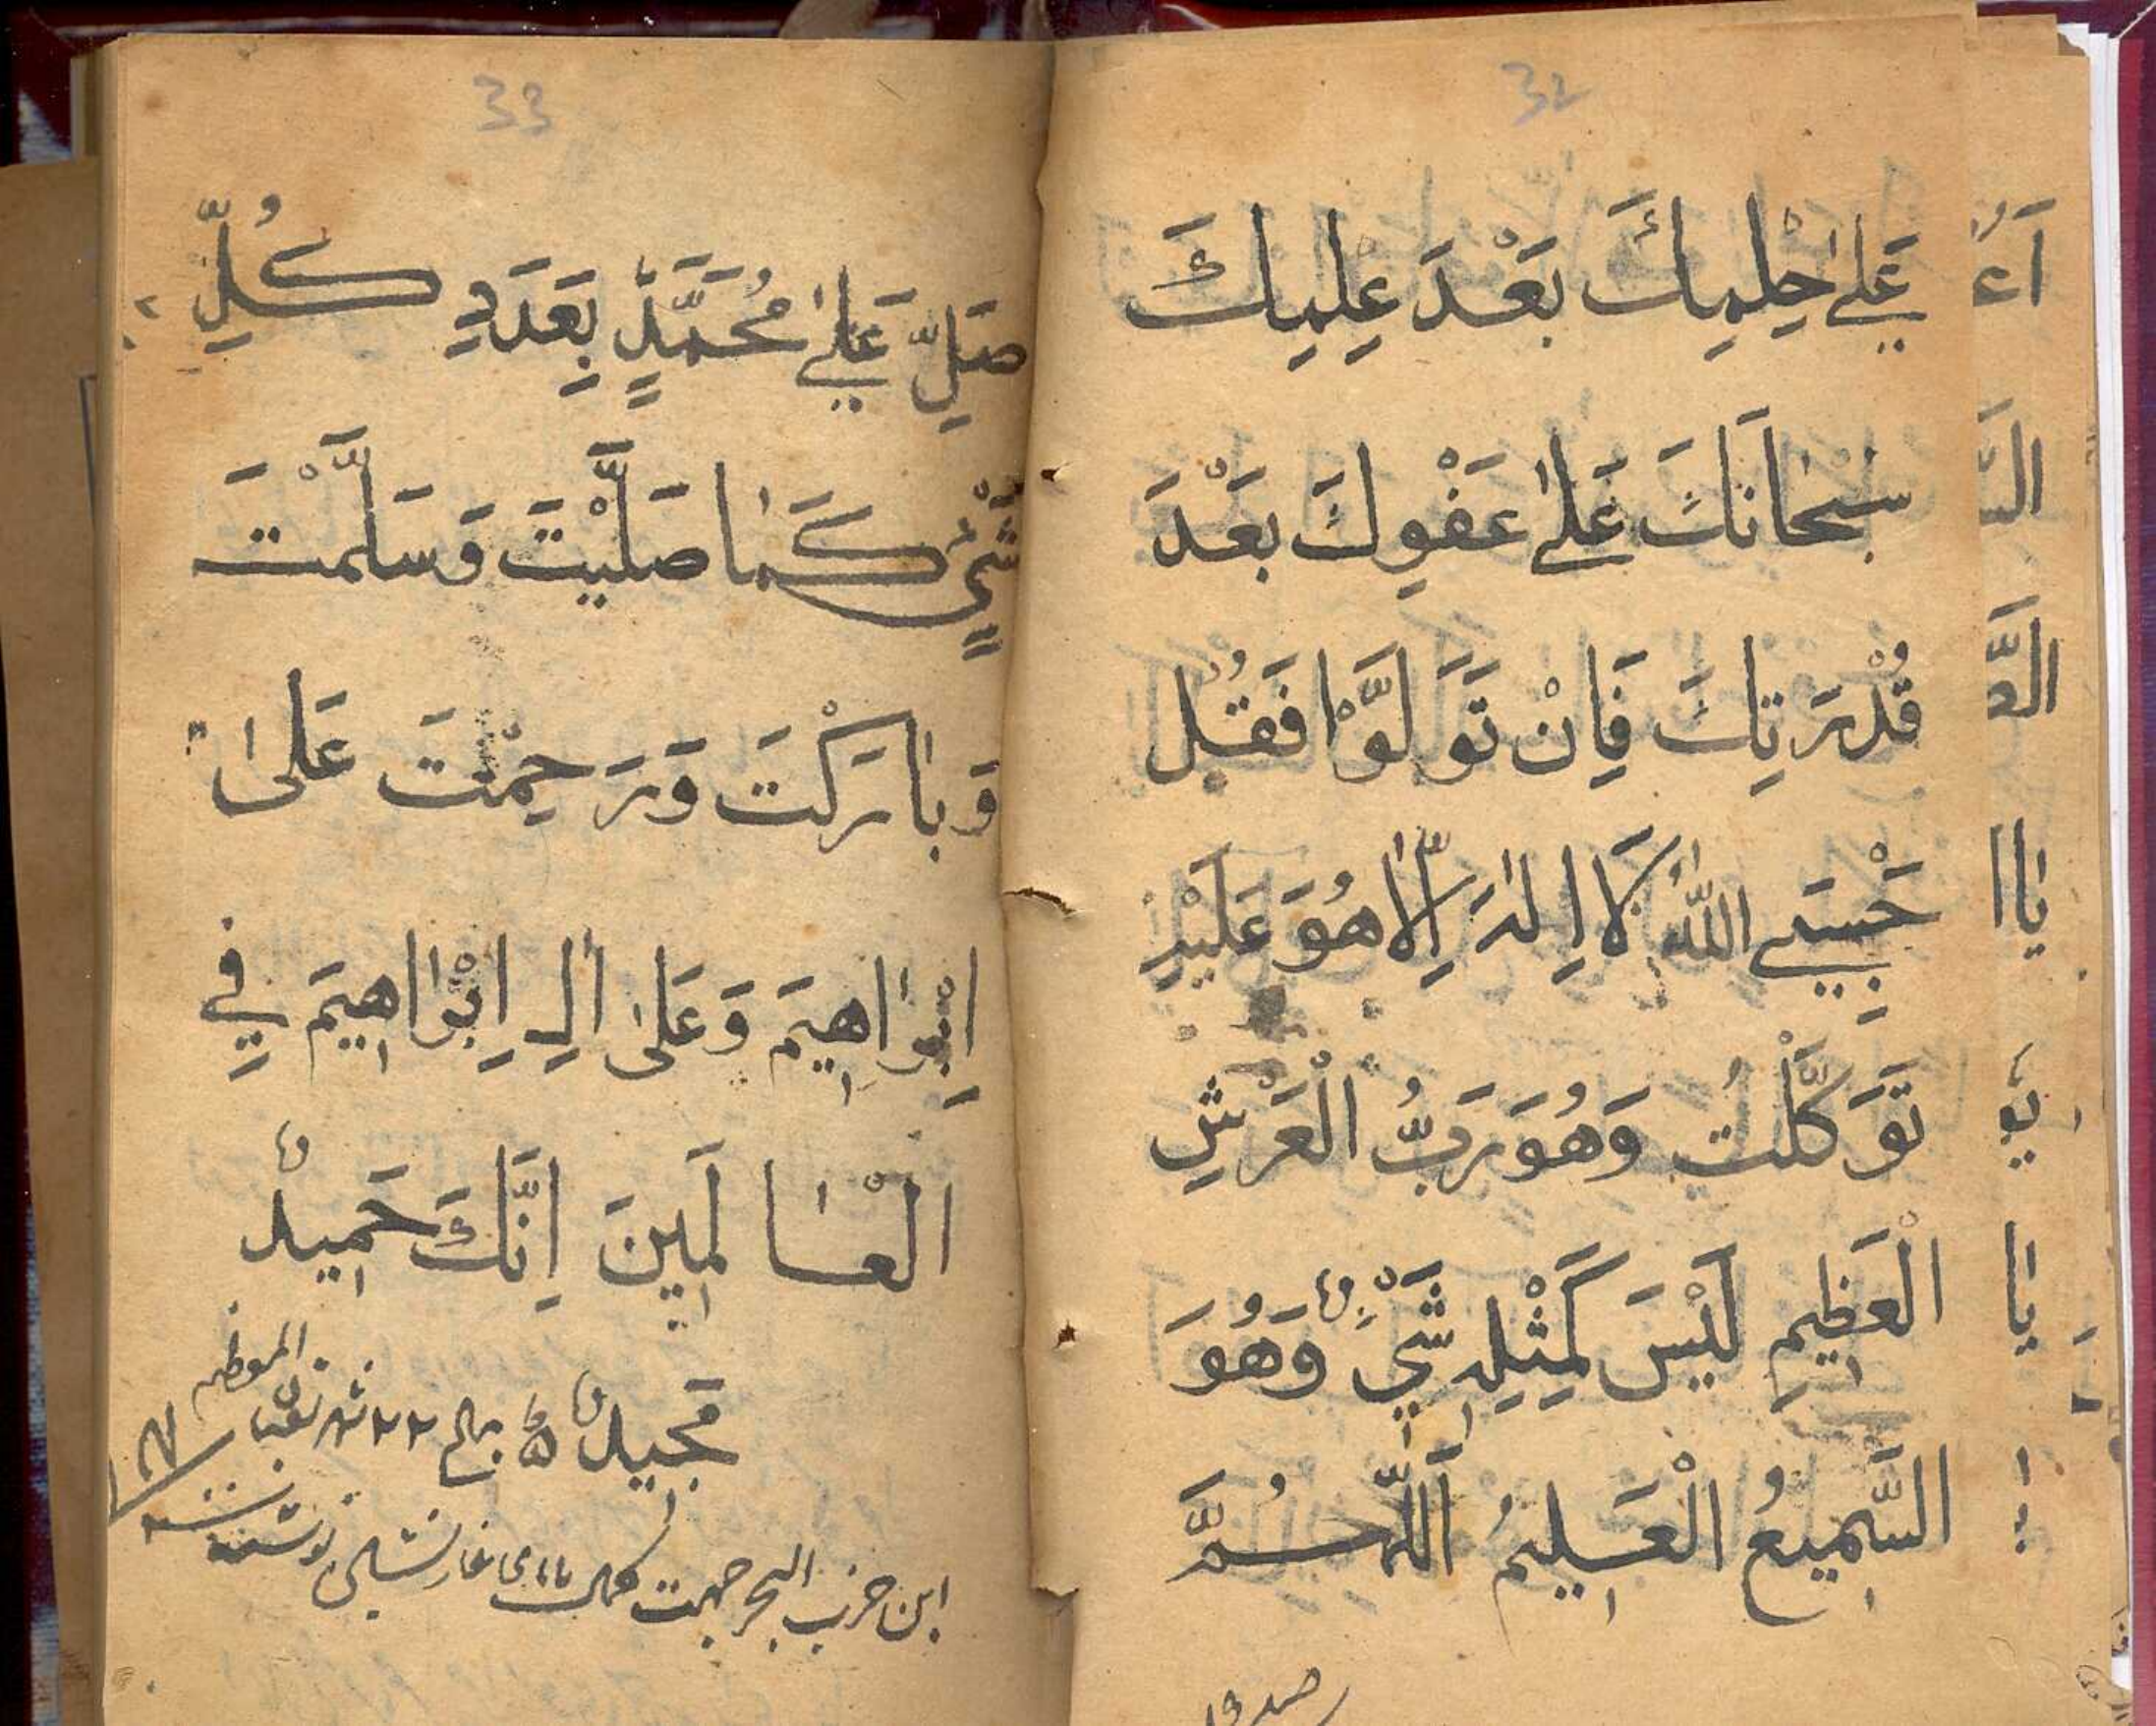 32
عَلىٰ حِلْمِكَ بَعْدَ عِلِمِكَ
سبْحانَكَ عَلىٰ عَفْوِكَ بَعْدَ
قُدْرَتِكَ فَاِنْ تَوَلَّوْا فَقُل
حَسْبِيَ اللّٰهُ لَا اِلٰهَ اِلّٰا هُوَ عَلَيْهِ
تَوَكَّلْتُ وَهُوَ رَبُّ الْعَرْشِ
الْعَظِيمِ لَيْسَ كَمِثْلِهِ شَيْءٌ وَهُوَ
السَّمِيعُ الْعَلِيمُ اَللّٰهُمَّ
33
صَلِّ عَلىٰ مُحَمَّدٍ بِعَدَدِ كُلِّ
شَيْءٍ كَمٰا صَلَّيْتَ وَسَلَّمْتَ
وَبٰارَكْتَ وَرَحِمْتَ عَلىٰ
اِبْرٰاهِيمَ وَعَلىٰ اٰلِ اِبْرٰاهِيمَ فِي
الْعٰالَمِينَ اِنَّكَ حَمِيدٌ
مَجِيدٌ ٢٢ شهر شعبان المعظم
اين حزب البحر جهت